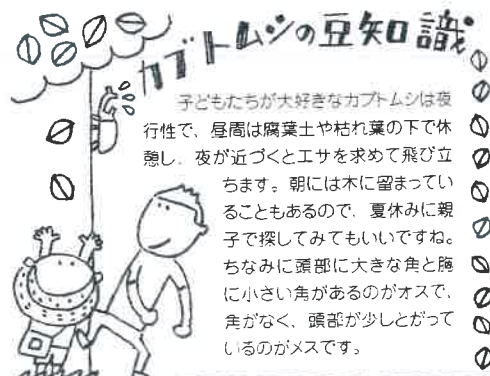 カブトムシの豆知識
子どもたちが大好きなカブトムシは夜
行性で、昼間は腐葉土や枯れ葉の下で休
憩し、夜が近づくとエサを求めて飛び立
ちます。朝には木に留まってい
ることもあるので、夏休みに親
子で探してみてもいいですね。
ちなみに頭部に大きな角と胸
に小さい角があるのがオスで、
角がなく、頭部が少しとがって
いるのがメスです。